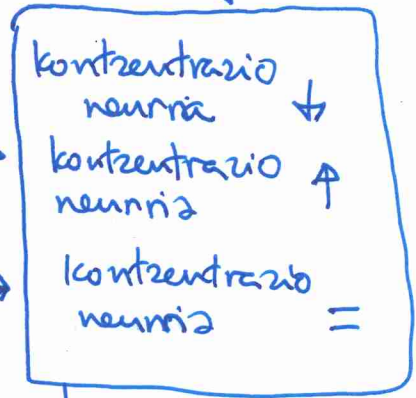 kontzentrazio
neurria ↓
kontzentrazio ↑
neurria
kontzentrazio
neurria =